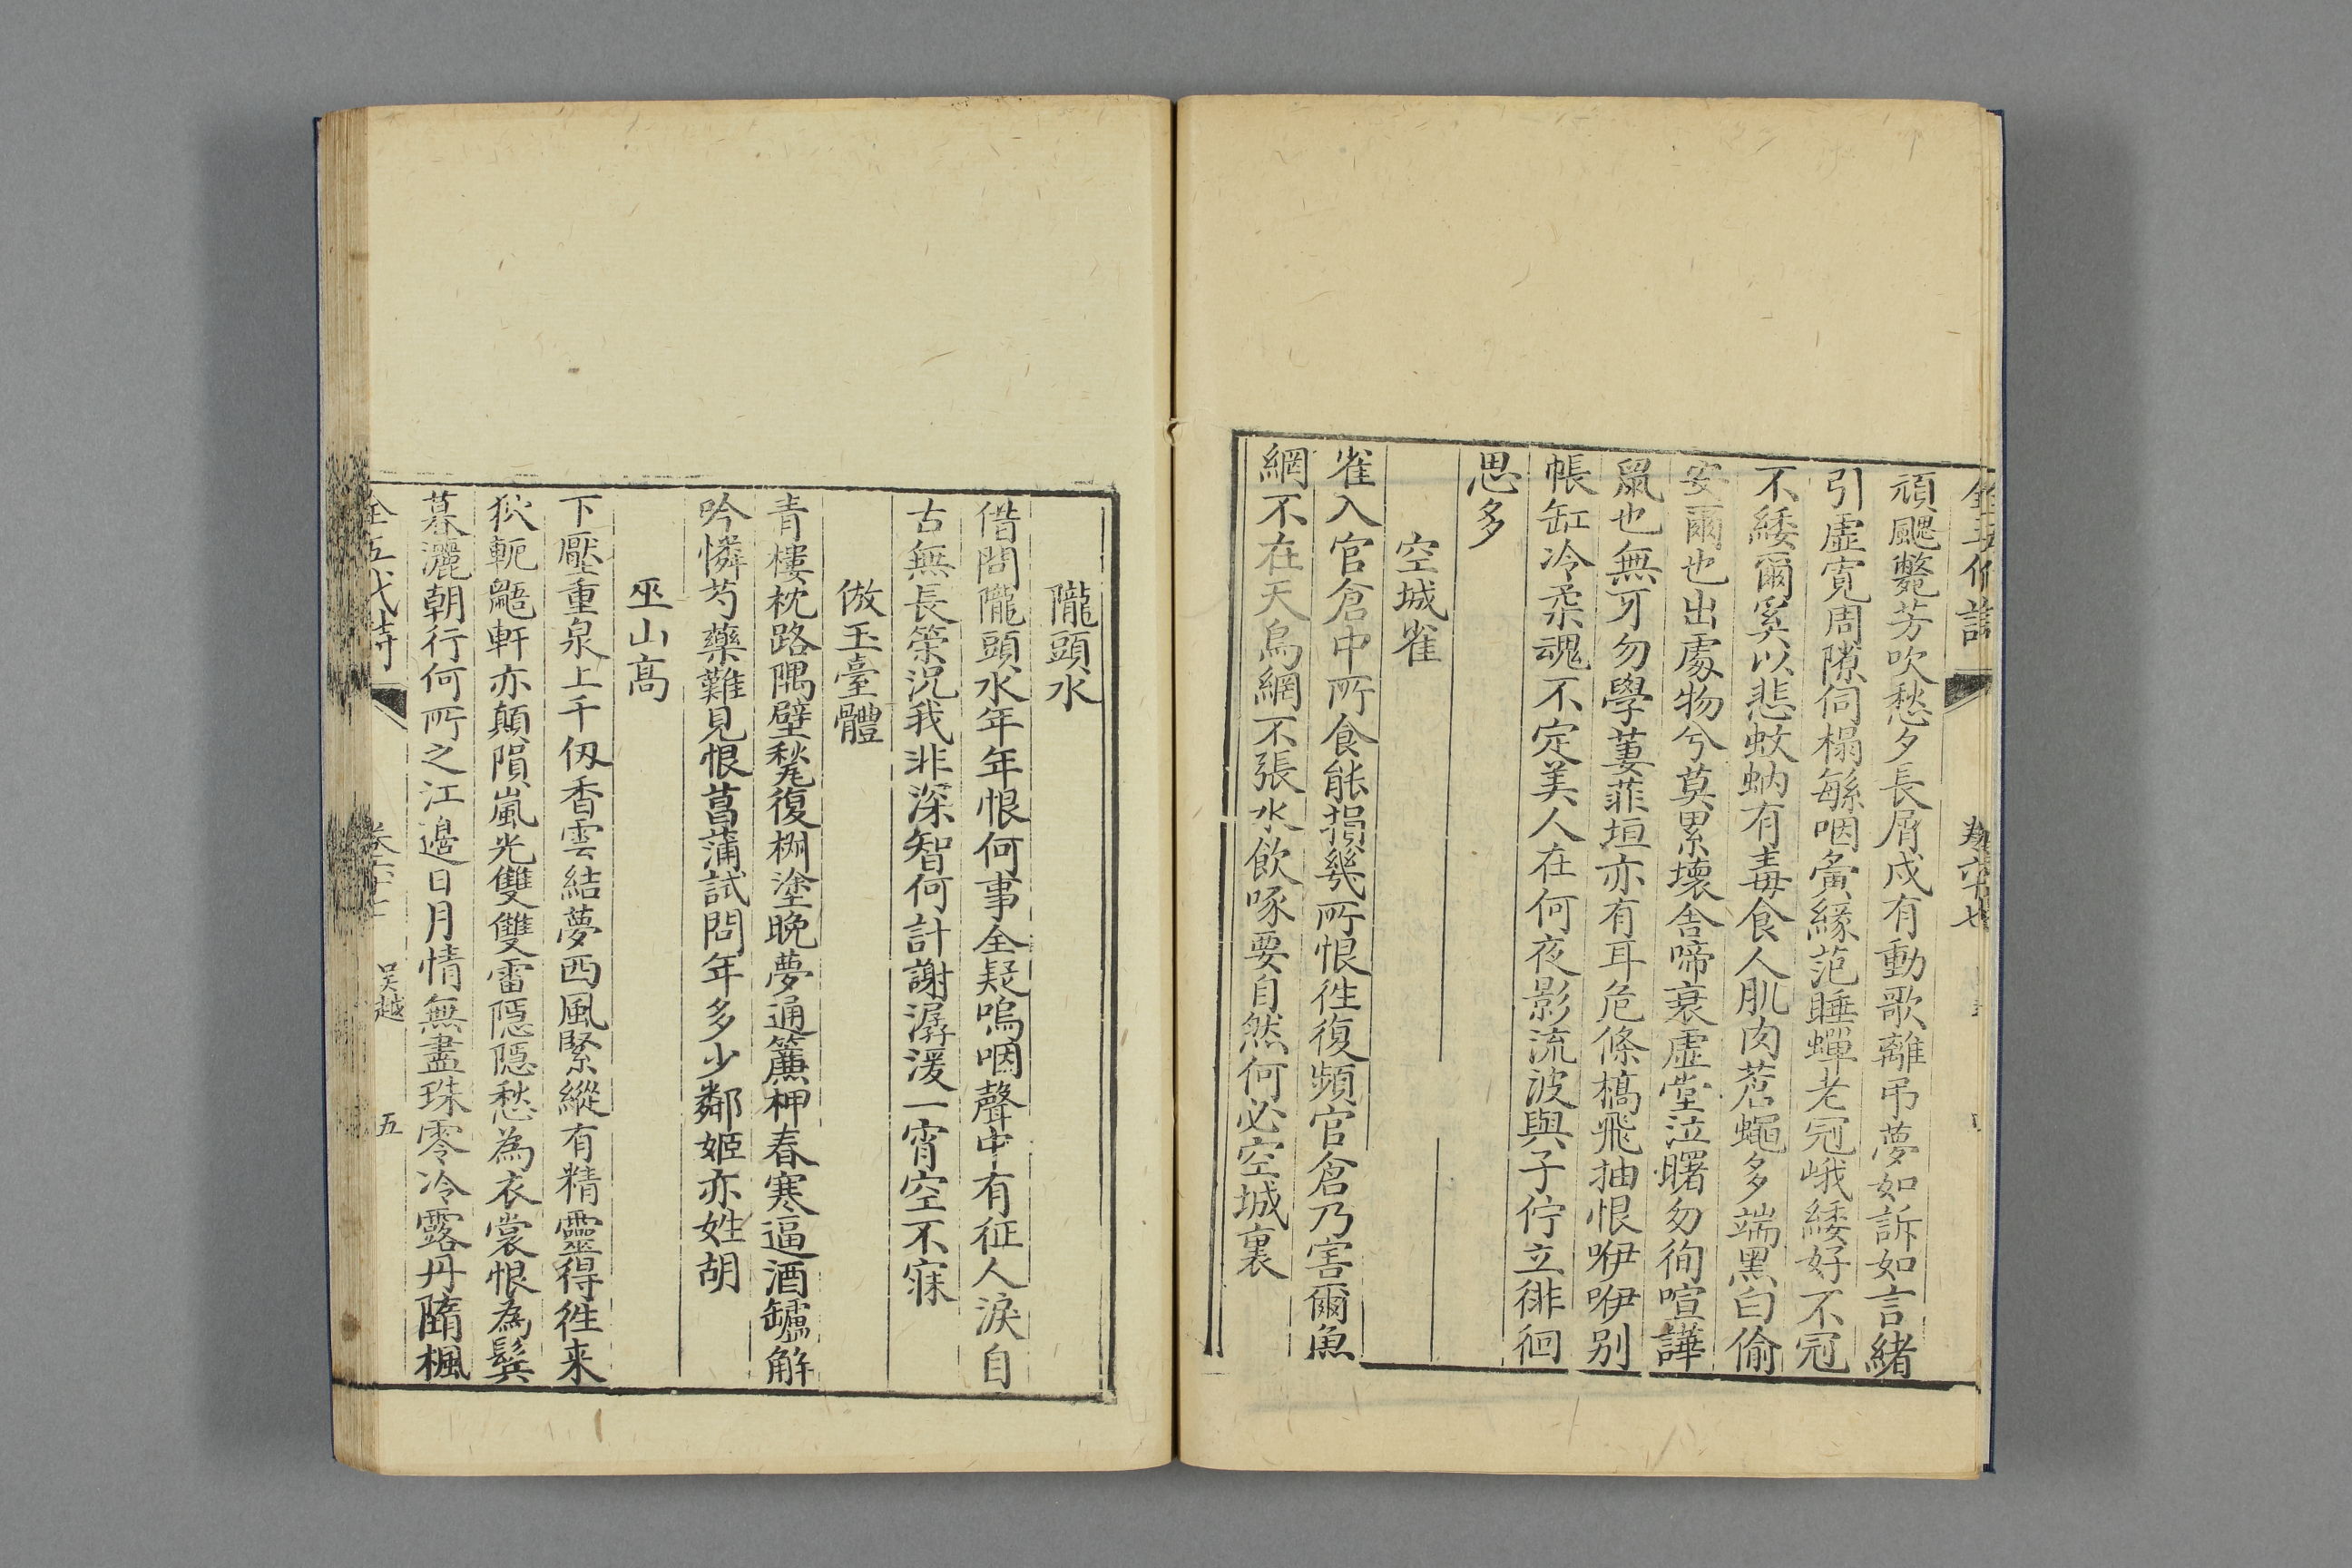 全五代詩
卷六十七
頑颸斃芳吹愁夕長屑戍有動歌離弔夢如訴如言緒
引虛寬周隙伺榻緐咽夤緣范睡蟬老冠峨緌好不冠
不緌爾奚以悲蚊蚋有毒食人肌肉蒼蠅多端黑白偷
安爾也出處物兮莫累壞舎啼衰虛堂泣曙勿徇喧譁
鼠也無牙勿學萋菲垣亦有耳危條槁飛抽恨咿咿别
帳缸冷柔魂不定美人在何夜影流波與子佇立徘徊
思多
空城雀
雀入官倉中所食能損幾所恨徃復頻官倉乃害爾魚
網不在天鳥網不張水飲啄要自然何必空城裏
隴頭水
借問隴頭水年年恨何事全疑嗚咽聲中有征人淚自
古無長策況我非深智何計謝潺湲一宵空不寐
倣玉臺體
青樓枕路隅壁甃復椒塗晚夢通簾柙春寒逼酒罏解
吟憐芍藥難見恨菖蒲試問年多少鄰姬亦姓胡
巫山高
下壓重泉上千仭香雲結夢西風緊縱有精靈得徃来
狖軛鼯軒亦顛隕嵐光雙雙雷隱隱愁為衣裳恨為鬂
暮灑朝行何所之江邊日月情無盡珠零冷露丹隨楓
全五代詩
卷六十七
吳越
五